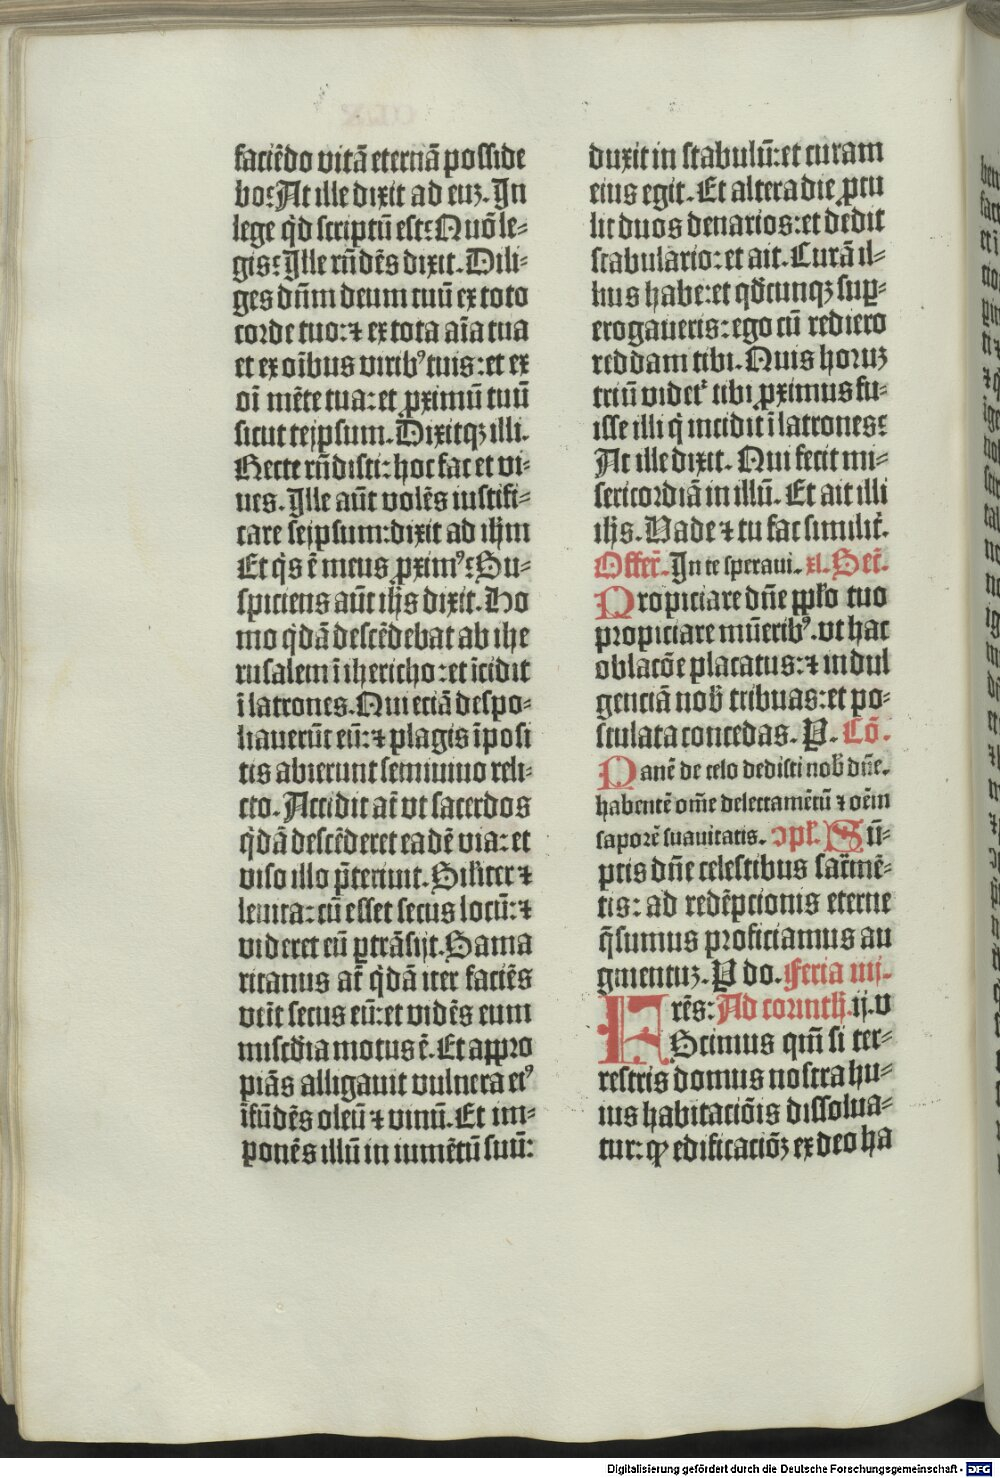 faciēdo vitā eternā posside
bo: At ille dixit ad euꝫ. In
lege qͥd scriptū est: Quō le⸗
gis: Ille rn̄dēs dixit. Dili⸗
ges dn̄m deum tuū ex toto
corde tuo: ⁊ ex tota aīa tua
et ex oībus viribꝰ tuis: et ex
oī mēte tua: et ꝓximū tuū
sicut teipsum. Dixitqꝫ illi.
Recte rn̄disti: hoc fac et vi⸗
ues. Ille aūt volēs iustifi⸗
care seipsum: dixit ad ihm̄
Et qͥs ē meus ꝓximꝰ: Su⸗
spiciens aūt ihs̄ dixit. Ho
mo qͥdā descēdebat ab ihe
rusalem ī ihericho: et īcidit
ī latrones. Qui eciā despo⸗
liauerūt eū: ⁊ plagis īposi
tis abierunt semiuiuo reli⸗
cto. Accidit at̄ vt sacerdos
qͥdā descēderet eadē via: et
viso illo p̄teriuit. Silꝶiter ⁊
leuita: cū esset secus locū: ⁊
videret eū ꝑtrāsijt. Sama
ritanus at̄ qͥdā iter faciēs
veīt secus eū: et vidēs eum
miscd̄ia motus ē. Et appro
piās alligauit vulnera eiꝰ
īfūdēs oleū ⁊ vinū. Et im⸗
ponēs illū in iumētū suū:
duxit in stabulū: et curam
eius egit. Et altera die ꝓtu
lit duos denarios: et dedit
stabulario: et ait. Curā il⸗
lius habe: et qd̄cunqꝫ suꝑ⸗
erogaueris: ego cū rediero
reddam tibi. Quis horuꝫ
triū videt᷑ tibi ꝓximus fu⸗
isse illi qͥ incidit ī latrones:
At ille dixit. Qui fecit mi⸗
sericordiā in illū. Et ait illi
ihs̄. Vade ⁊ tu fac similit᷑.
Offer̄. In te speraui. xl. Secr̄.
Propiciare dn̄e ppło tuo
propiciare mūeribꝰ. vt hac
oblacōe placatus: ⁊ indul
genciā nob̄ tribuas: et po⸗
stulata concedas. P. Cō.
Panē de celo dedisti nob̄ dn̄e.
habentē om̄e delectamētū ⁊ oēm
saporē suauitatis. ↄpł. Sū⸗
ptis dn̄e celestibus sacr̄mē⸗
tis: ad redēpcionis eterne
q̄sumus proficiamus au
gmentuꝫ. P do. Feria iiij.
Frēs: Ad corinth. ij. v
Scimus qm̄ si ter⸗
restris domus nostra hu⸗
ius habitaciōis dissolua⸗
tur: ꝙ edificaciōꝫ ex deo ha
Digitalisierung gefördert durch die Deutsche Forschungsgemeinschaft - DFG